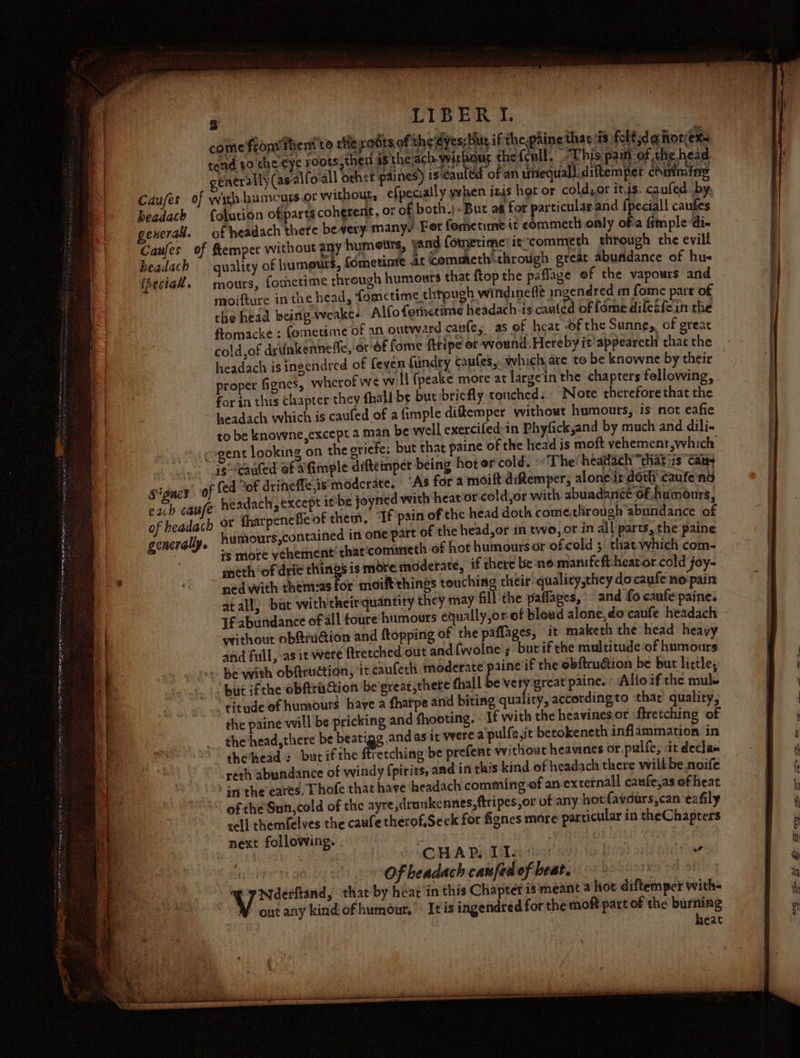 2 LIBER I.
come from them to the roots of the eyes; but if the paine that is felt, do not ex-
tend to the eye roots, then is the ach without the scull. This pain of the head
generally (as also all other paines) is caused of an unequall distemper comming
Causes of with humours or without, especially when it is hot or cold, or it is caused by
headach solution of parts coherent, or of both. But as for particular and speciall causes
generall. of headach there be very many. For sometime it commeth only of a simple di-
Causes of stemper without any humours, and sometime it commeth through the evill
headach quality of humours, sometime it commeth through great abundance of hu-
speciall. mours, sometime through humours that stop the passage of the vapours and
moisture in the head, sometime through windinesse ingendred in some part of
the head being weake. Also sometime headach is caused of some disease in the
stomacke: sometime of an outward cause, as of heat of the Sunne, of great
cold, of drunkennesse, or of some stripe or wound. Hereby it appeareth that the
headach is ingendred of seven sundry causes, which are to be knowne by their
proper signes, wherof we will speake more at large in the chapters following,
for in this chapter they shall be but briefly touched. Note therefore that the
headach which is caused of a simple distemper without humours, is not easie
to be knowne, except a man be well exercised in Physick, and by much and dili-
gent looking on the griefe; but that paine of the head is most vehement, which
is caused of a simple distemper being hot or cold. The headach that is cau-
Signes of sed of drinesse, is moderate. As for a moist distemper, alone it doth cause no
each cause headach, except it be joyned with heat or cold, or with abundance of humours,
of headach or sharpenesse of them. If pain of the head doth come through abundance of
generally. humours, contained in one part of the head, or in two, or in all parts, the paine
is more vehement that commeth of hot humours or of cold; that which com-
meth of drie things is more moderate, if there be no manifest heat or cold joy-
ned with them: as for moist things touching their quality, they do cause no pain
at all, but with their quantity they may fill the passages, and so cause paine.
If abundance of all foure humours equally, or of bloud alone, do cause headach
without obstruction and stopping of the passages, it maketh the head heavy
and full, as it were stretched out and swolne; but if the multitude of humours
be with obstruction, it causeth moderate paine if the obstruction be but little;
but if the obstruction be great, there shall be very great paine. Also if the mul-
titude of humours have a sharpe and biting quality, according to that quality,
the paine will be pricking and shooting. If with the heavines or stretching of
the head, there be beating and as it were a pulse, it betokeneth inflammation in
the head: but if the stretching be present without heavines or pulse, it decla-
reth abundance of windy spirits, and in this kind of headach there will be noise
in the eares. Those that have headach comming of an externall cause, as of heat
of the Sun, cold of the ayre, drunkennes, stripes, or of any hot savours, can easily
tell themselves the cause therof. Seek for signes more particular in the Chapters
next following.
CHAP. II.
Of headach caused of heat.
VNderstand, that by heat in this Chapter is meant a hot distemper with-
out any kind of humour. It is ingendred for the most part of the burning
heat